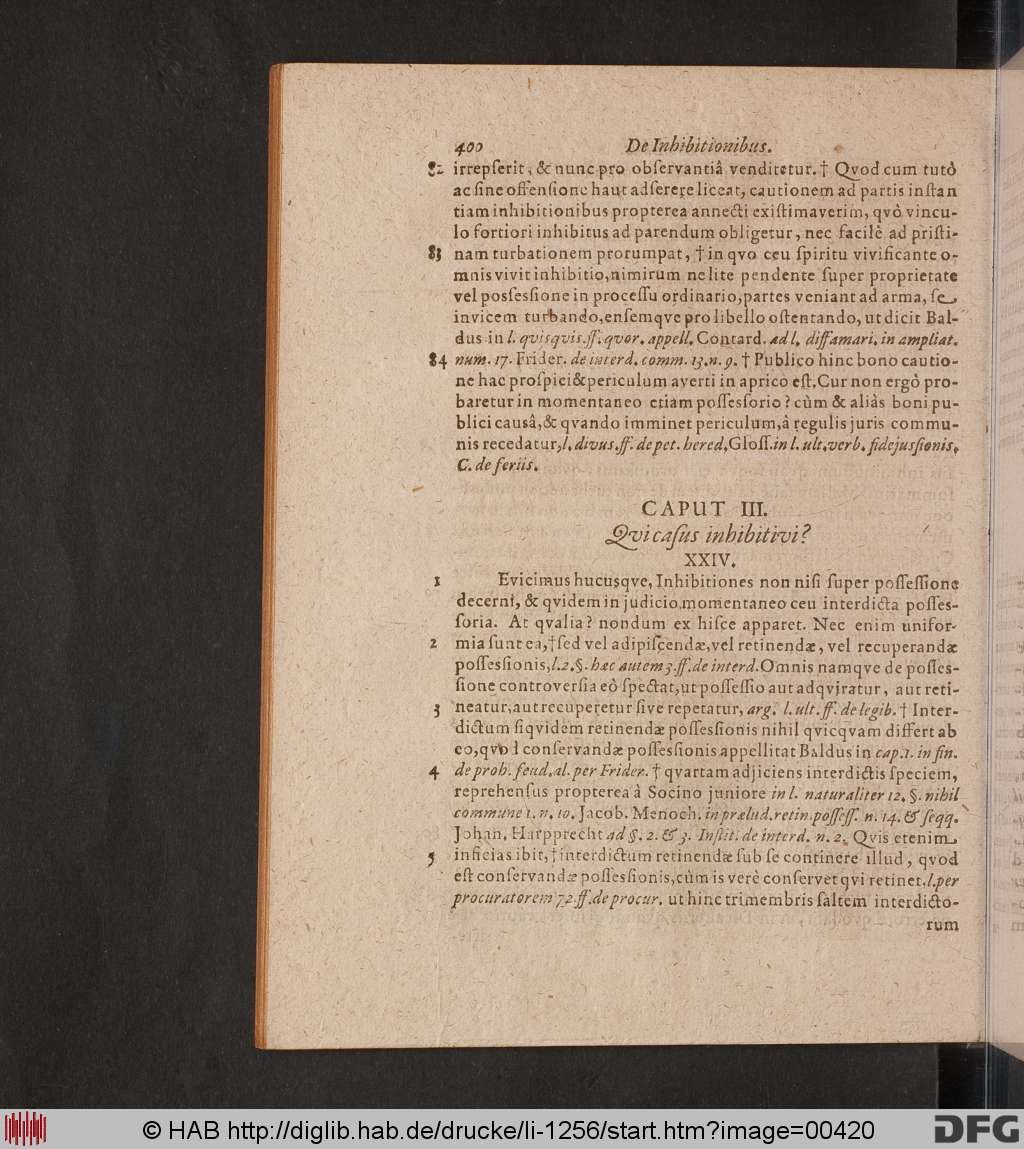 400 De Inhibitionibus.
82 irrepserit, & nunc pro observantiâ venditetur. † Qvod cum tutò
ac sine offensione haut adserere liceat, cautionem ad partis instan
tiam inhibitionibus propterea annecti existimaverim, qvò vincu-
lo fortiori inhibitus ad parendum obligetur, nec facilè ad pristi-
83 nam turbationem prorumpat, † in qvo ceu spiritu vivificante o-
mnis vivit inhibitio, nimirum ne lite pendente super proprietate
vel possessione in processu ordinario, partes veniant ad arma, se
invicem turbando, ensemqve pro libello ostentando, ut dicit Bal-
dus in l. qvisqvis. ff. qvor. appell. Contard. ad l. diffamari. in ampliat.
84 num. 17. Frider. de interd. comm. 13. n. 9. † Publico hinc bono cautio-
ne hac prospici & periculum averti in aprico est. Cur non ergò pro-
baretur in momentaneo etiam possessorio? cùm & aliàs boni pu-
blici causâ, & qvando imminet periculum, à regulis juris commu-
nis recedatur, l. divus. ff. de pet. hered. Gloss. in l. ult. verb. fidejussionis.
C. de feriis.
CAPUT III.
Qvi casus inhibitivi?
XXIV.
1 Evicimus hucusqve, Inhibitiones non nisi super possessione
decerni, & qvidem in judicio momentaneo ceu interdicta posses-
soria. At qvalia? nondum ex hisce apparet. Nec enim unifor-
2 mia sunt ea, † sed vel adipiscendæ, vel retinendæ, vel recuperandæ
possessionis, l. 2. §. hæc autem 3. ff. de interd. Omnis namqve de posses-
sione controversia eò spectat, ut possessio aut adqviratur, aut reti-
3 neatur, aut recuperetur sive repetatur, arg. l. ult. ff. de legib. † Inter-
dictum siqvidem retinendæ possessionis nihil qvicqvam differt ab
eo, qvod conservandæ possessionis appellitat Baldus in cap. 1. in fin.
4 de prob. feud. al. per Frider. † qvartam adjiciens interdictis speciem,
reprehensus propterea à Socino juniore in l. naturaliter 12. §. nihil
commune 1. n. 10. Jacob. Menoch. in prælud. retin. possess. n. 14. & seqq.
Johan. Harpprecht ad §. 2. & 3. Instit. de interd. n. 2. Qvis etenim
5 inficias ibit, † interdictum retinendæ sub se continere illud, qvod
est conservandæ possessionis, cùm is verè conservet qvi retinet. l. per
procuratorem 72. ff. de procur. ut hinc trimembris saltem interdicto-
rum
© HAB http://diglib.hab.de/drucke/li-1256/start.htm?image=00420
DFG